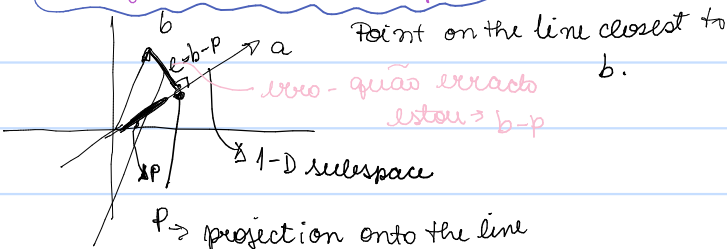 b
Point on the line closest to
b.
e=b-p
a
erro - quão errado
estou → b-p
1-D subespace
P
P → projection onto the line